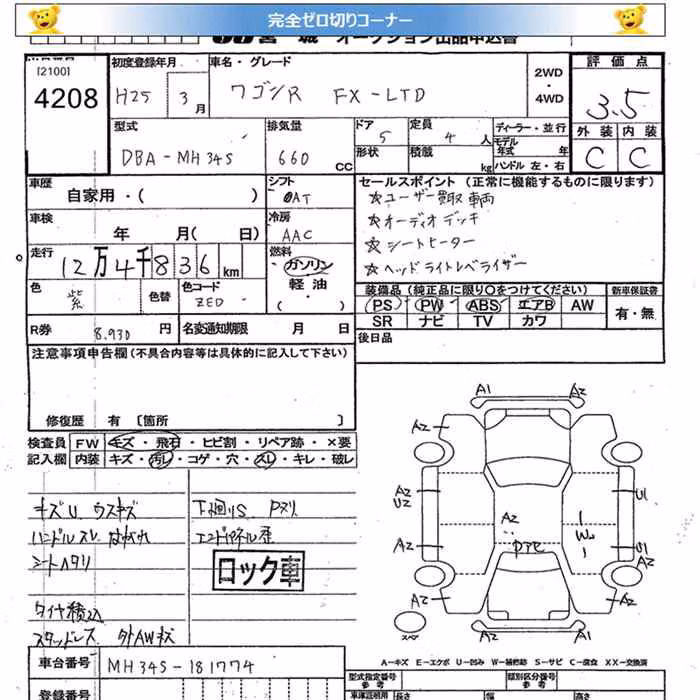 完全ゼロ切りコーナー
オークション出品申込書
[2100]
4208
初度登録年月
H25 3月
車名・グレード
ワゴンR FX-LTD
2WD
・
4WD
評価点
3.5
外装 内装
C C
型式
DBA-MH34S
排気量
660 CC
ドア
5
形状
定員
4 人
積載
kg
ディーラー・並行
モデル年式 年
ハンドル左・右
車歴
自家用・( )
シフト
AT
セールスポイント(正常に機能するものに限ります)
☆ユーザー買取車両
☆オーディオデッキ
☆シートヒーター
☆ヘッドライトレベライザー
車検
年 月( 日)
冷房
AAC
走行
12万4千836km
燃料
ガソリン
軽油
・
( )
色
紫
色替
色コード
ZED
装備品(純正品に限り○をつけてください)
PS PW ABS エアB AW
SR ナビ TV カワ
新車保証書
有・無
R券 8,930 円
名変通知期限 月 日
後日品
注意事項申告欄(不具合内容等は具体的に記入して下さい)
修復歴 有 [箇所 ]
検査員
記入欄
FW キズ・飛石・ヒビ割・リペア跡・×要
内装 キズ・汚レ・コゲ・穴・スレ・キレ・破レ
キズU ウスキズ
ハンドルスレ
シートヘタリ
タイヤ積込
スタッドレス 外AWキズ
下廻りS Pヌリ
ロック車
A1 A2
A2 A2
A2
U2
U1
A2
W
A2
U1
A2
A2 A2
A2 A2
スペア
A-キズ E-エクボ U-凹み W-補修跡 S-サビ C-腐食 XX-交換済
車台番号
MH34S-181774
登録番号
型式指定番号
参考
類別区分番号
参考
長さ
幅
高さ